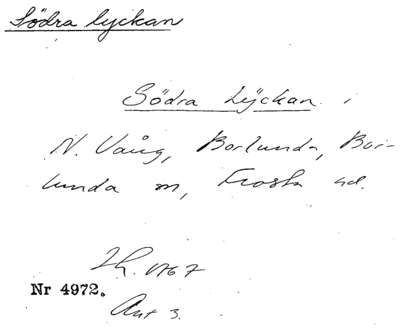 Södra lyckan
Södra Lyckan.
N. Vång, Borlunda, Bor-
lunda sn, Frosta hd.
1767
Nr 4972.
Akt 3.